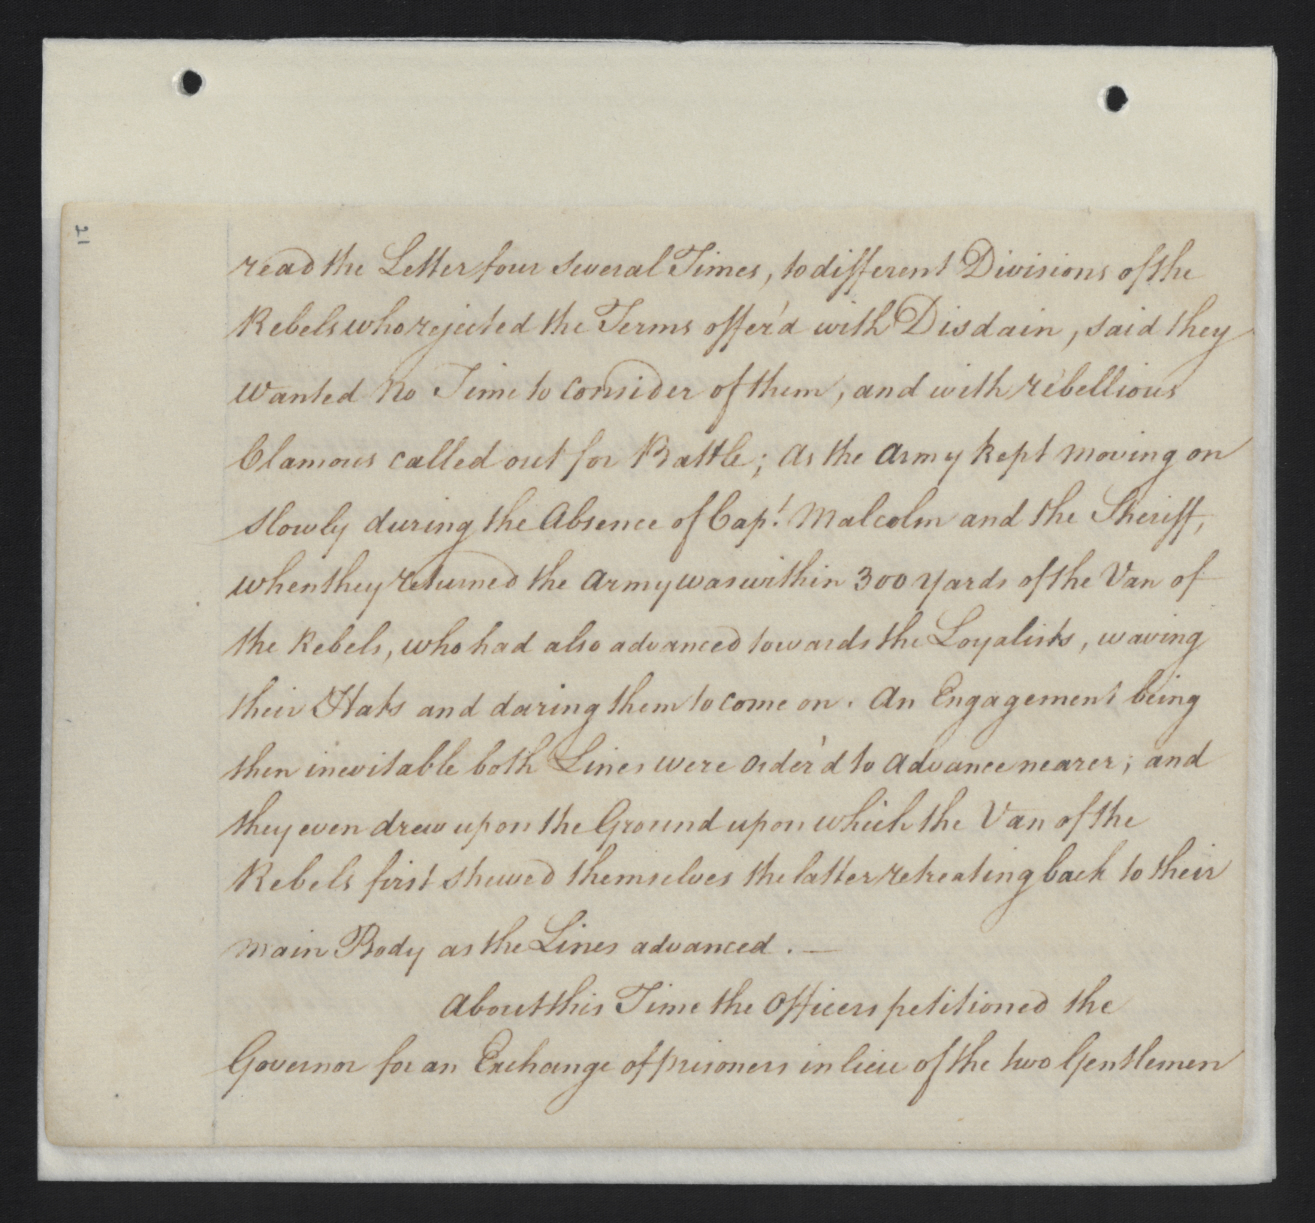 21
read the Letter four several Times, to different Divisions of the
Rebels who rejected the Terms offer'd with Disdain, said they
wanted no Time to consider of them, and with rebellious
Clamours called out for Battle; As the Army kept moving on
slowly during the Absence of Capt. Malcolm and the Sheriff,
when they returned the Army was within 300 Yards of the Van of
the Rebels, who had also advanced towards the Loyalists, waving
their Hats and daring them to come on. An Engagement being
then inevitable both Lines were order'd to advance nearer; and
they even drew upon the Ground upon which the Van of the
Rebels first shewed themselves the latter retreating back to their
main Body as the Lines advanced. —
About this Time the Officers petitioned the
Governor for an Exchange of prisoners in lieu of the two Gentlemen